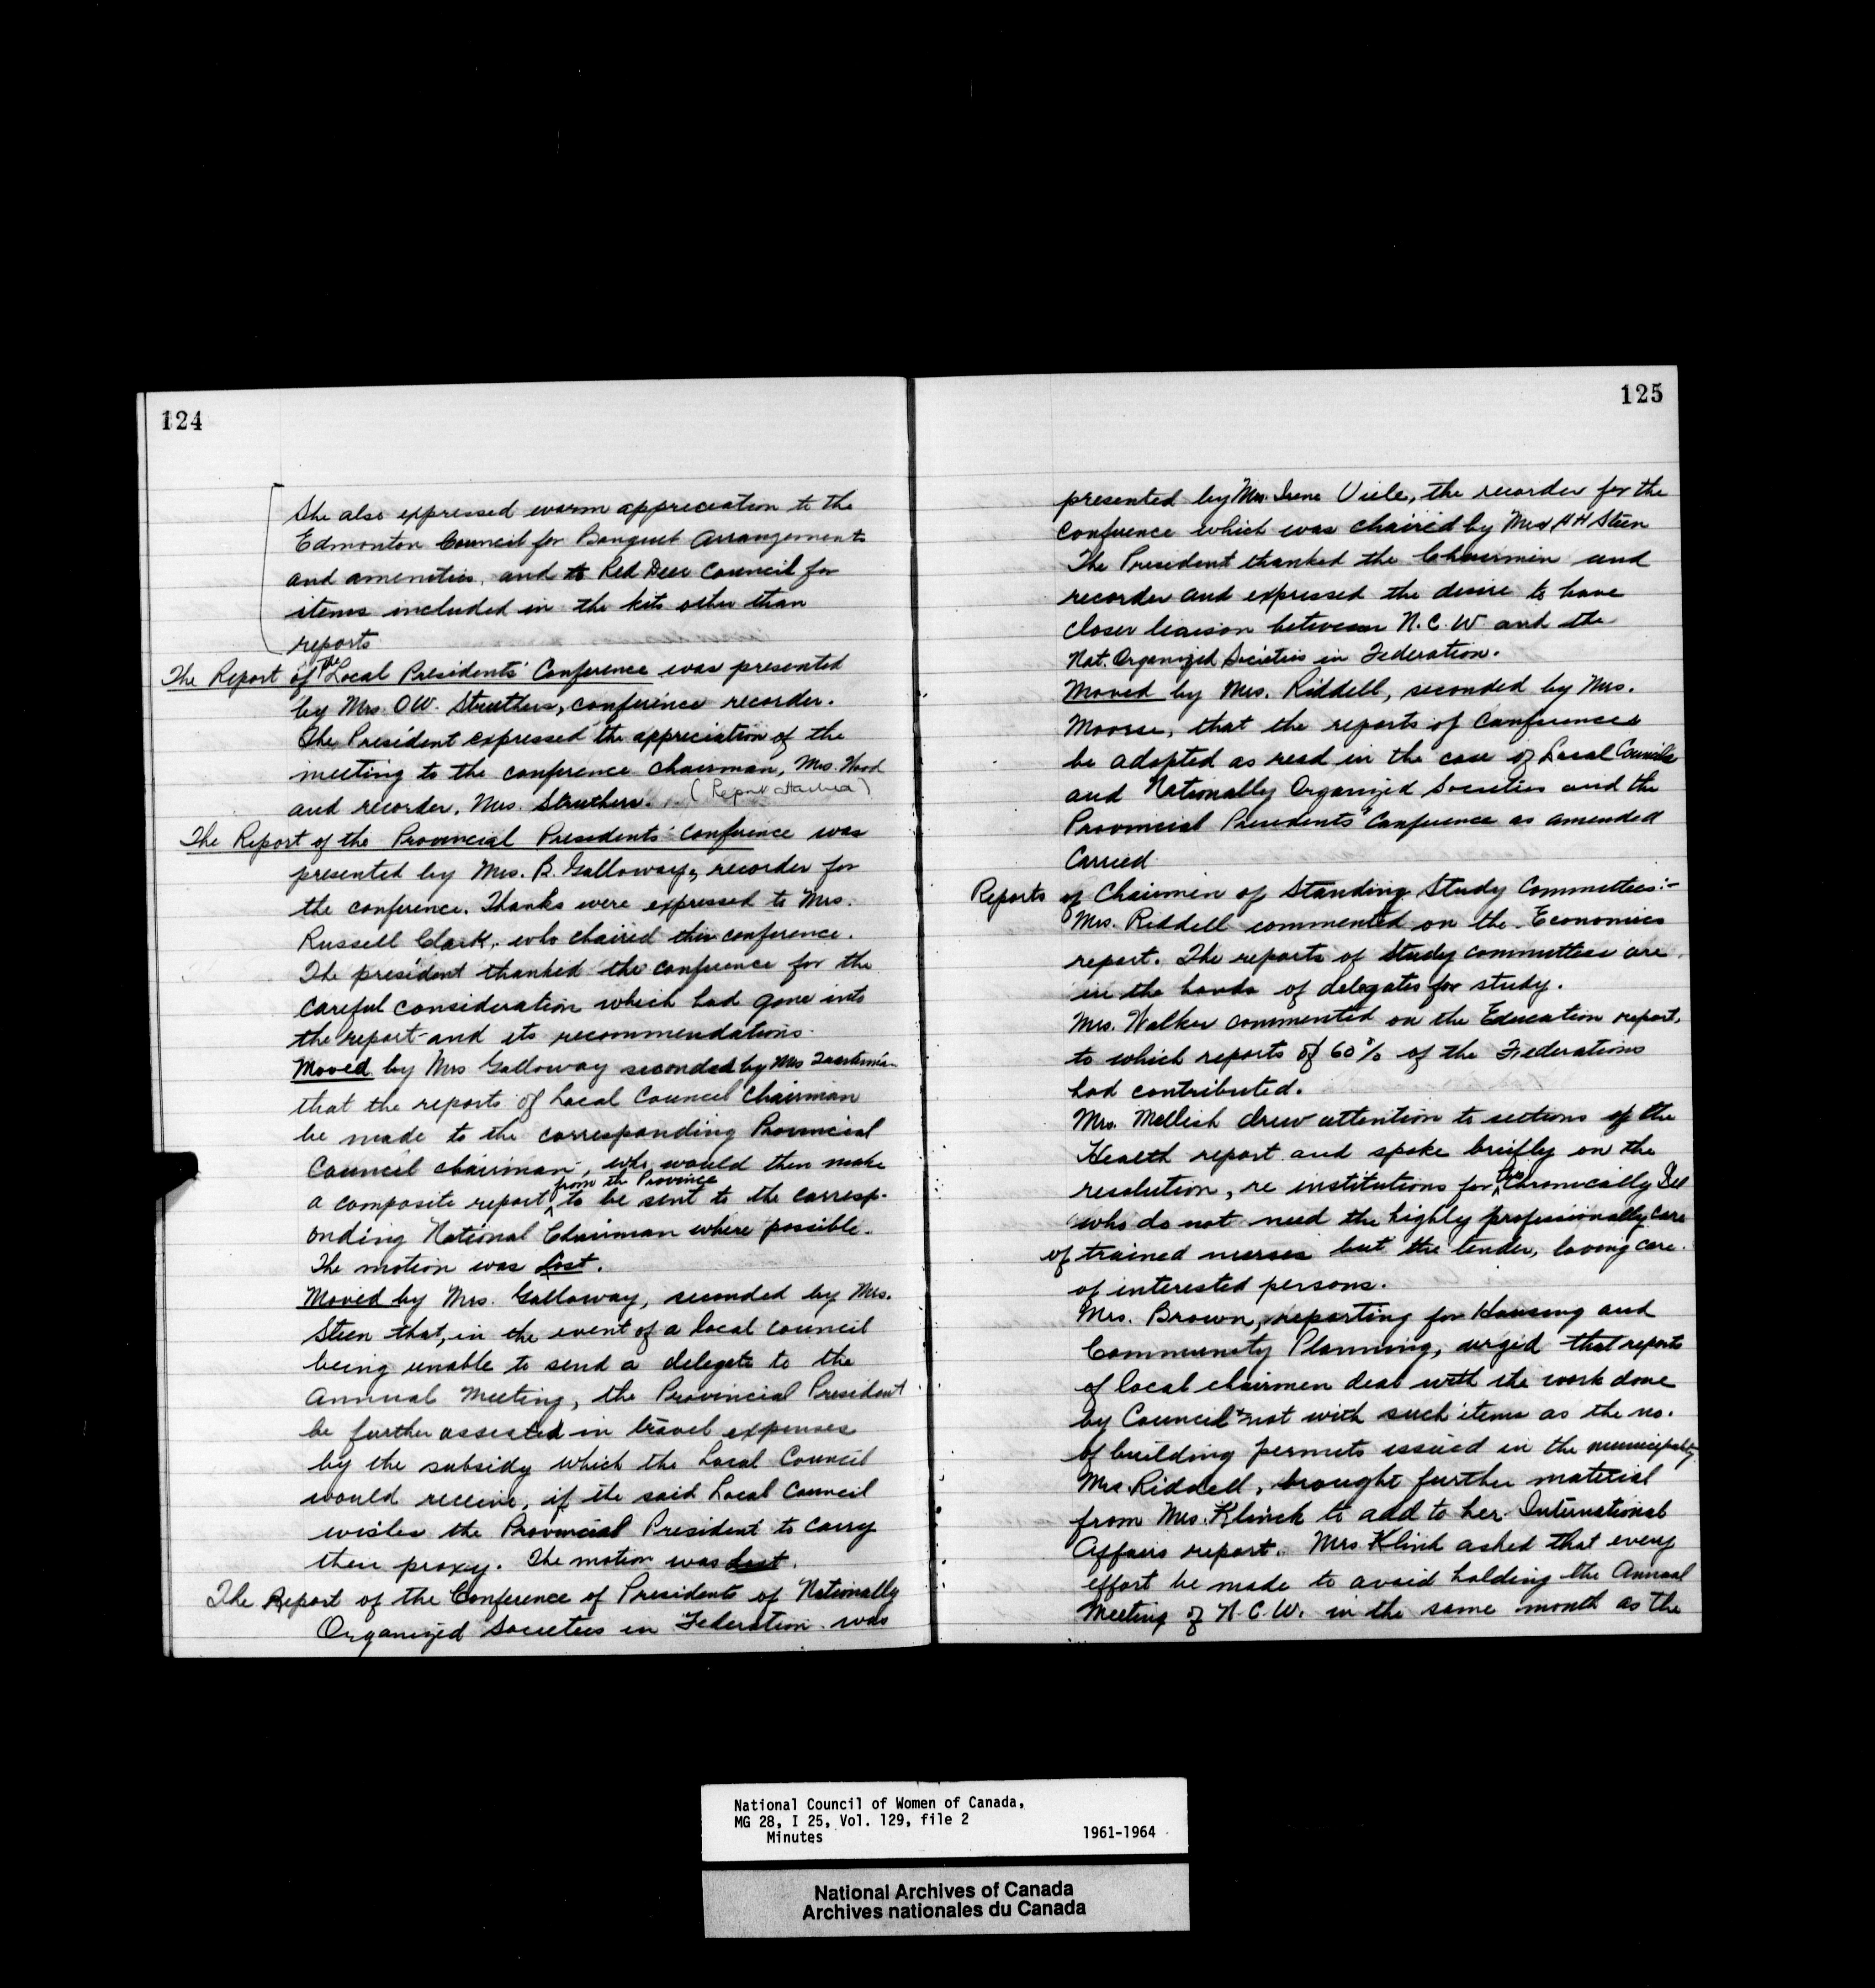 124
She also expressed warm appreciation to the
Edmonton Council for Banquet Arrangements
and amenities, and to Red Deer Council for
items included in the kits other than
reports
The Report of the Local Presidents' Conference was presented
by Mrs. O.W. Struthers, conference recorder.
The President expressed the appreciation of the
meeting to the conference chairman, Mrs. Hood
and recorder, Mrs. Struthers. (Report attached)
The Report of the Provincial Presidents' Conference was
presented by Mrs. B. Galloway, recorder for
the conference. Thanks were expressed to Mrs.
Russell Clark, who chaired the conference.
The president thanked the conference for the
careful consideration which had gone into
the report and its recommendations.
Moved by Mrs Galloway seconded by Mrs
that the reports of Local Council Chairman
be made to the corresponding Provincial
Council chairman, who would then make
a composite report from the Province to be sent to the corresp-
onding National Chairman where possible.
The motion was lost.
Moved by Mrs. Galloway, seconded by Mrs.
Steen that, in the event of a local council
being unable to send a delegate to the
Annual Meeting, the Provincial President
be further assisted in travel expenses
by the subsidy which the Local Council
would receive, if the said Local Council
wishes the Provincial President to carry
their proxy. The motion was lost.
The Report of the Conference of Presidents of Nationally
Organized Societies in Federation was
125
presented by Mrs. Irene Viele, the recorder for the
conference which was chaired by Mrs H H Steen
The President thanked the Chairmen and
recorder and expressed the desire to have
closer liaison between N.C.W. and the
Nat. Organized Societies in Federation.
Moved by Mrs. Riddell, seconded by Mrs.
Moorse, that the reports of Conferences
be adopted as read in the case of Local Councils
and Nationally Organized Societies and the
Provincial Presidents' Conference as amended
Carried.
Reports of Chairmen of Standing Study Committees:-
Mrs. Riddell commented on the Economics
report. The reports of Study committees are
in the hands of delegates for study.
Mrs. Walker commented on the Education report,
to which reports of 60% of the Federations
had contributed.
Mrs. Mellish drew attention to sections of the
Health report and spoke briefly on the
resolution, re institutions for the Chronically Ill
who do not need the highly professionally care
of trained nurses but the tender, loving care
of interested persons.
Mrs. Brown, reporting for Housing and
Community Planning, urged that reports
of local chairmen deal with the work done
by Council & not with such items as the no.
of building permits issued in the municipality
Mrs Riddell, brought further material
from Mrs. Klinck to add to her International
Affairs report. Mrs Klinck asked that every
effort be made to avoid holding the Annual
Meeting of N.C.W. in the same month as the
National Council of Women of Canada,
MG 28, I 25, Vol. 129, file 2
Minutes 1961-1964
National Archives of Canada
Archives nationales du Canada